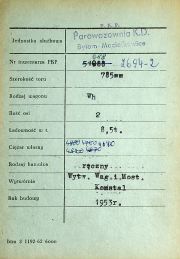 P.K.P.
Jednostka służbowa Parowozownia K.D.
Bytom-Maciejkowice
Nr inwentarza PKP 2694-2
Szerokość toru 785mm
Rodzaj wagonu Wh
Ilość osi 2
Ładowność w t. 8,5t.
Ciężar własny
Rodzaj hamulca ręczny
Wytwórnia Wytw. Wag.i.Most.
Konstal
Rok budowy 1953r.